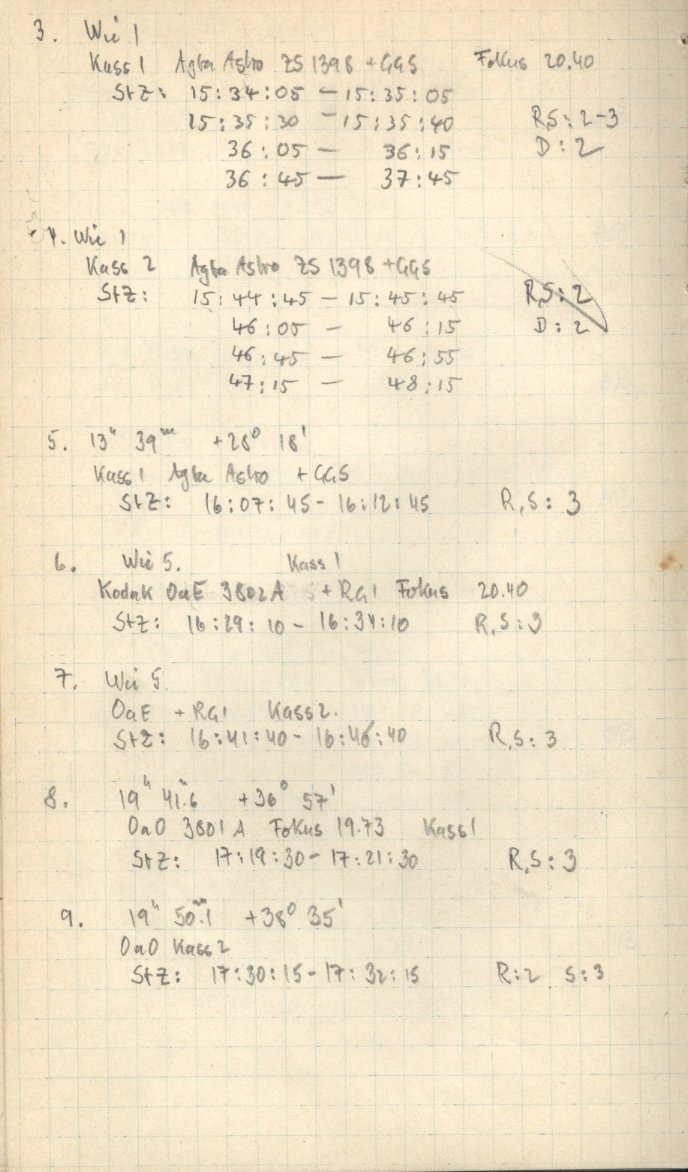 3. Wie 1
Kass 1 Agfa Astro ZS 1398 + GG5 Fokus 20.40
StZ: 15:34:05 — 15:35:05
15:35:30 — 15:35:40 R,S: 2-3
36:05 — 36:15 D: 2
36:45 — 37:45
4. Wie 1
Kass 2 Agfa Astro ZS 1398 + GG5
StZ: 15:44:45 — 15:45:45 R,S: 2
46:05 — 46:15 D: 2
46:45 — 46:55
47:15 — 48:15
5. 13h 39m +28° 18'
Kass 1 Agfa Astro + GG5
StZ: 16:07:45 - 16:12:45 R,S: 3
6. Wie 5. Kass 1
Kodak OaE 3802A + RG1 Fokus 20.40
StZ: 16:29:10 - 16:34:10 R,S: 3
7. Wie 5
OaE + RG1 Kass 2.
StZ: 16:41:40 - 16:46:40 R,S: 3
8. 19h 41m.6 +36° 57'
OaO 3801A Fokus 19.73 Kass 1
StZ: 17:19:30 - 17:21:30 R,S: 3
9. 19h 50m.1 +38° 35'
OaO Kass 2
StZ: 17:30:15 - 17:32:15 R: 2 S: 3